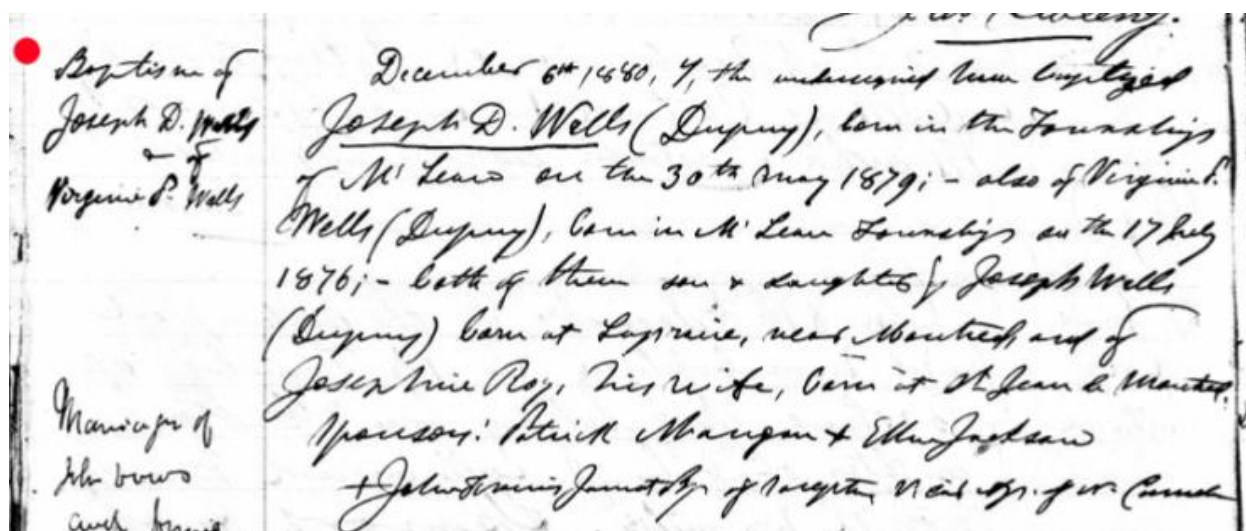 Baptism of
Joseph D. Wells
& of
Virginie P. Wells
December 6th 1880, I, the undersigned have baptized
Joseph D. Wells (Dupuy), born in the Townships
of Mc Lean on the 30th May 1879; - also of Virginie P.
Wells (Dupuy), born in Mc Lean Townships on the 17 July
1876; - both of them son & daughter of Joseph Wells
(Dupuy) born at Laprairie, near Montreal, and of
Josephine Roy, his wife, born at St Jean de Montreal.
Sponsors: Patrick Mangan & Ellen Jackson
+ John Francis Jamot Bp. of Vic. Ap. of N. Canada
Marriage of
John